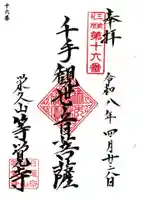 十六番
奉拝
第十六番
令和八年四月廿六日
千手観世音菩薩
栄久山等覚寺